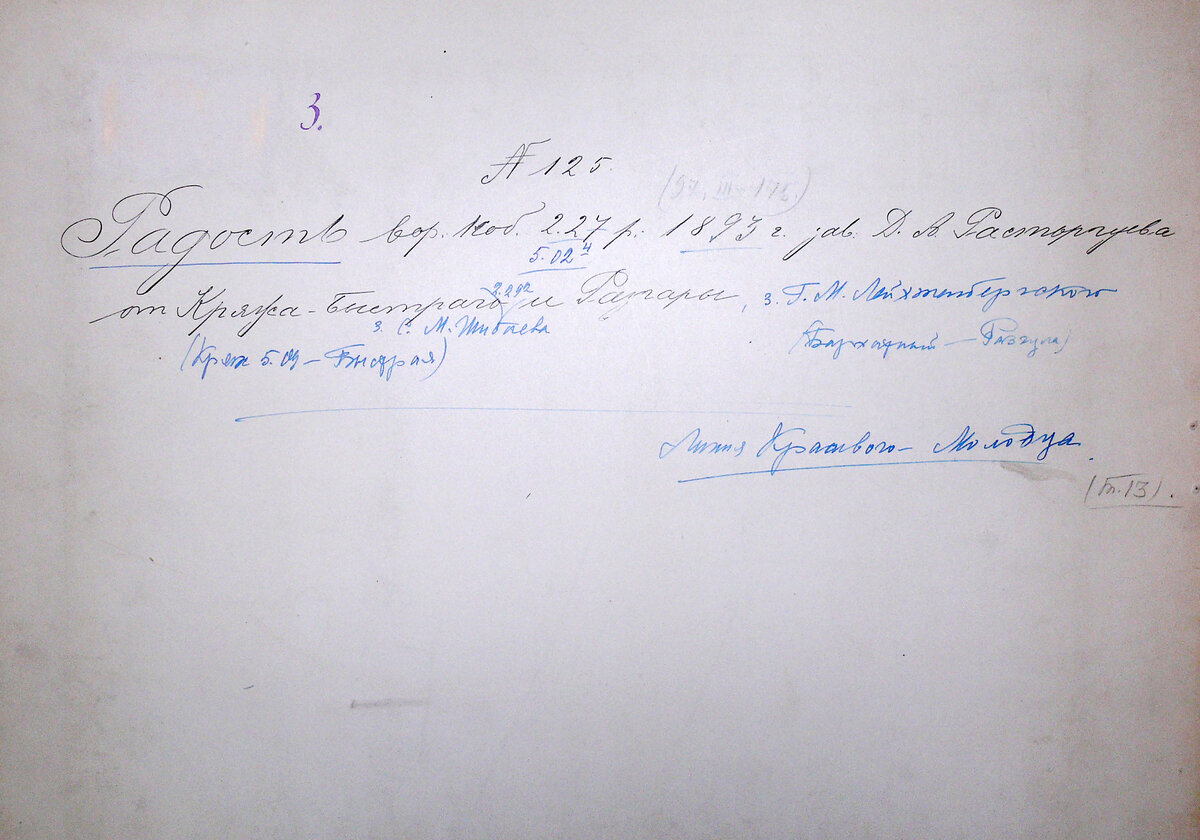 3.
№ 125.
Радость вор. коб. 2.27 р. 1893 г. зав. Д. А. Расторгуева
5.02⁴
2.29²
от Кряжа-Быстраго и Рапары, з. Г. М. Лейхтенбергского
з. С. М. Шибаева
(Кряж 5.09 — Быстрая) (Бархатный — Разгула)
Линия Красивого-Молодца
(т. 13).